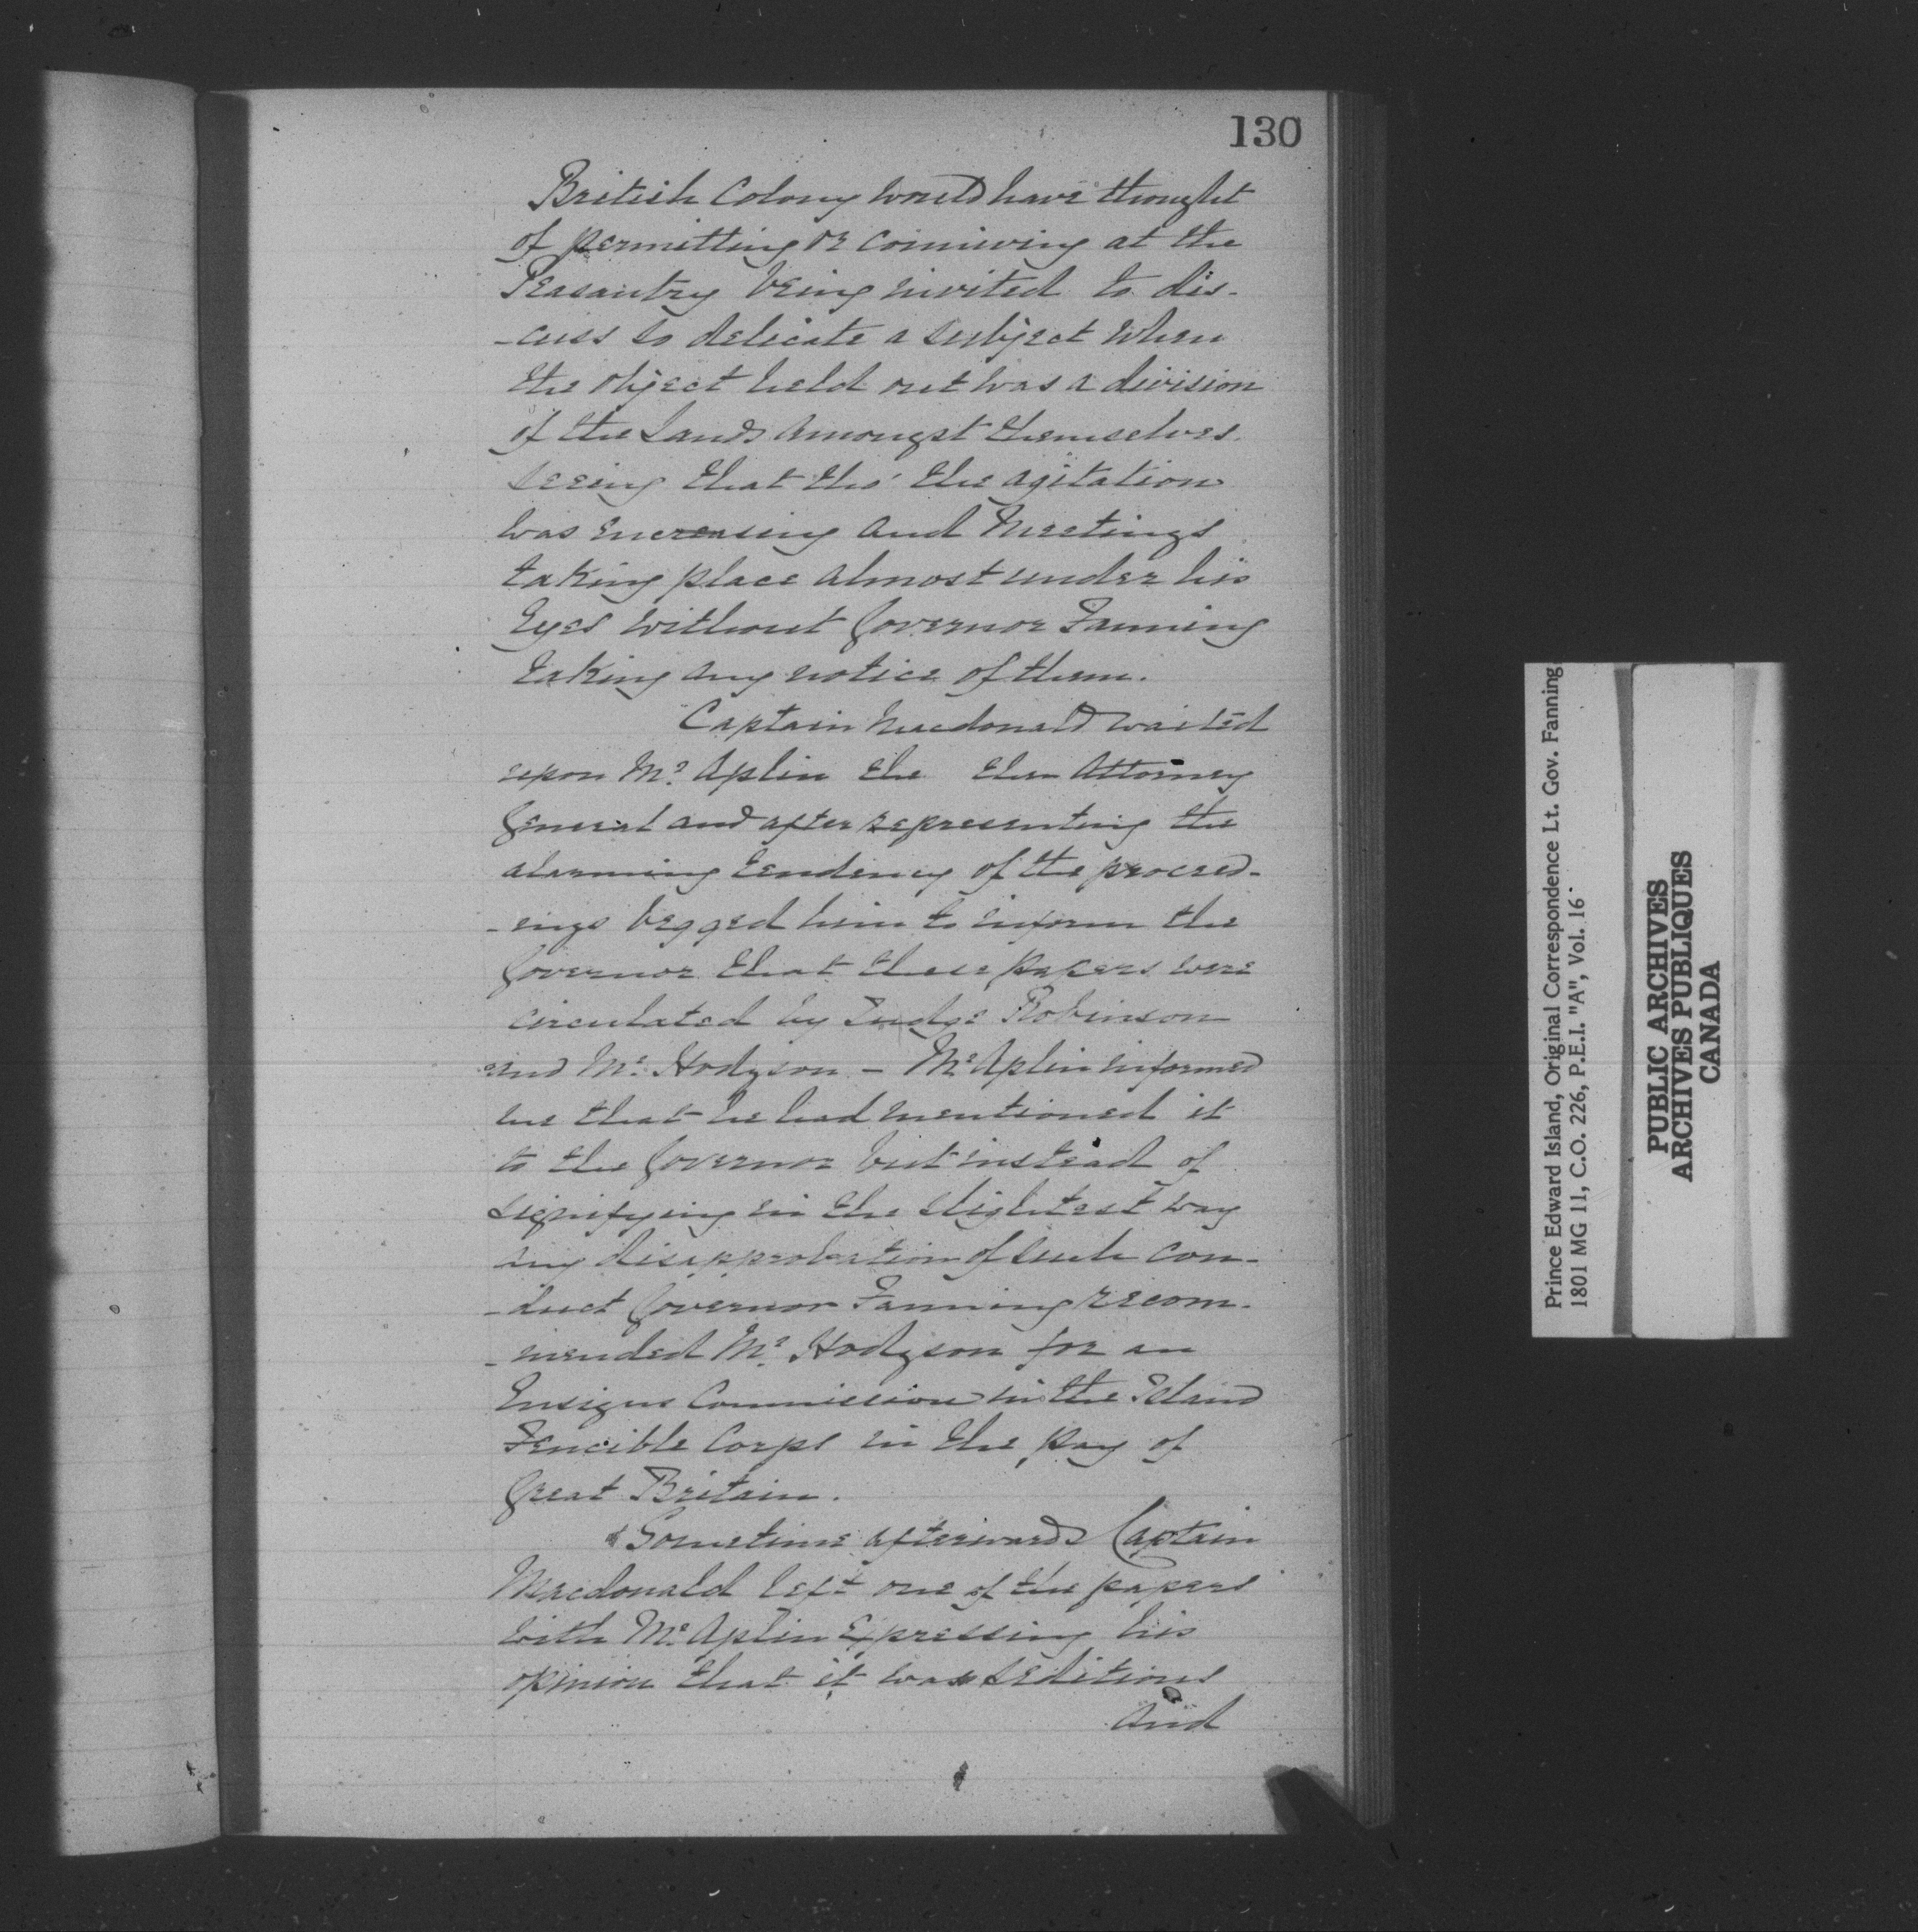 130
British Colony would have thought
of permitting or conniving at the
Peasantry being invited to dis-
-cuss so delicate a subject when
the object held out was a division
of the Lands amongst themselves.
seeing that tho' the agitation
was increasing and Meetings
taking place almost under his
Eyes without Governor Fanning
taking any notice of them.
Captain Macdonald waited
upon Mr. Aplin the then Attorney
General and after representing the
alarming tendency of the proceed-
-ings begged him to inform the
Governor that these papers were
circulated by Judge Robinson
and Mr. Hodgson – Mr. Aplin informed
me that he had mentioned it
to the Governor but instead of
signifying in the slightest way
any disapprobation of such con-
-duct Governor Fanning recom-
-mended Mr. Hodgson for an
Ensigns Commission in the Island
Fencible Corps in the pay of
Great Britain.
Sometime afterwards Captain
Macdonald left one of the papers
with Mr. Aplin Expressing his
opinion that it was seditious
And
Prince Edward Island, Original Correspondence Lt. Gov. Fanning
1801 MG 11, C.O. 226, P.E.I. "A", Vol. 16
PUBLIC ARCHIVES
ARCHIVES PUBLIQUES
CANADA